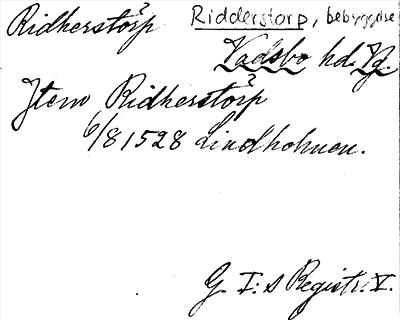 Ridherstörp Ridderstorp, bebyggelse
Vadsbo hd. Vg.
Jtem Ridherstörp
6/8 1528 Lindholmen.
G. I:s Registr. V.